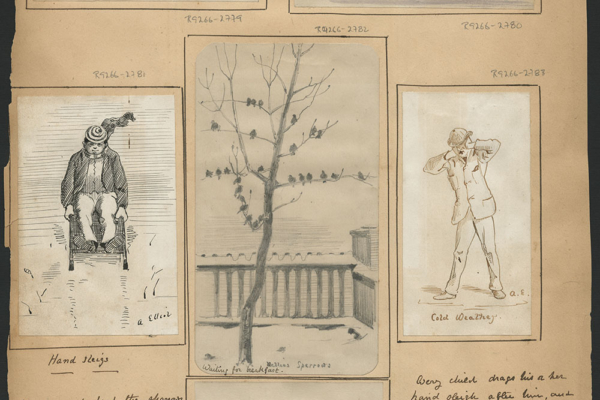 R9266-2779
R9266-2780
R9266-2782
R9266-2781
R9266-2783
A Elliot
Hand sleighs
Waiting for breakfast. Sparrows
A. E.
Cold Weather.
Every child drags his or her
hand sleigh after him, and